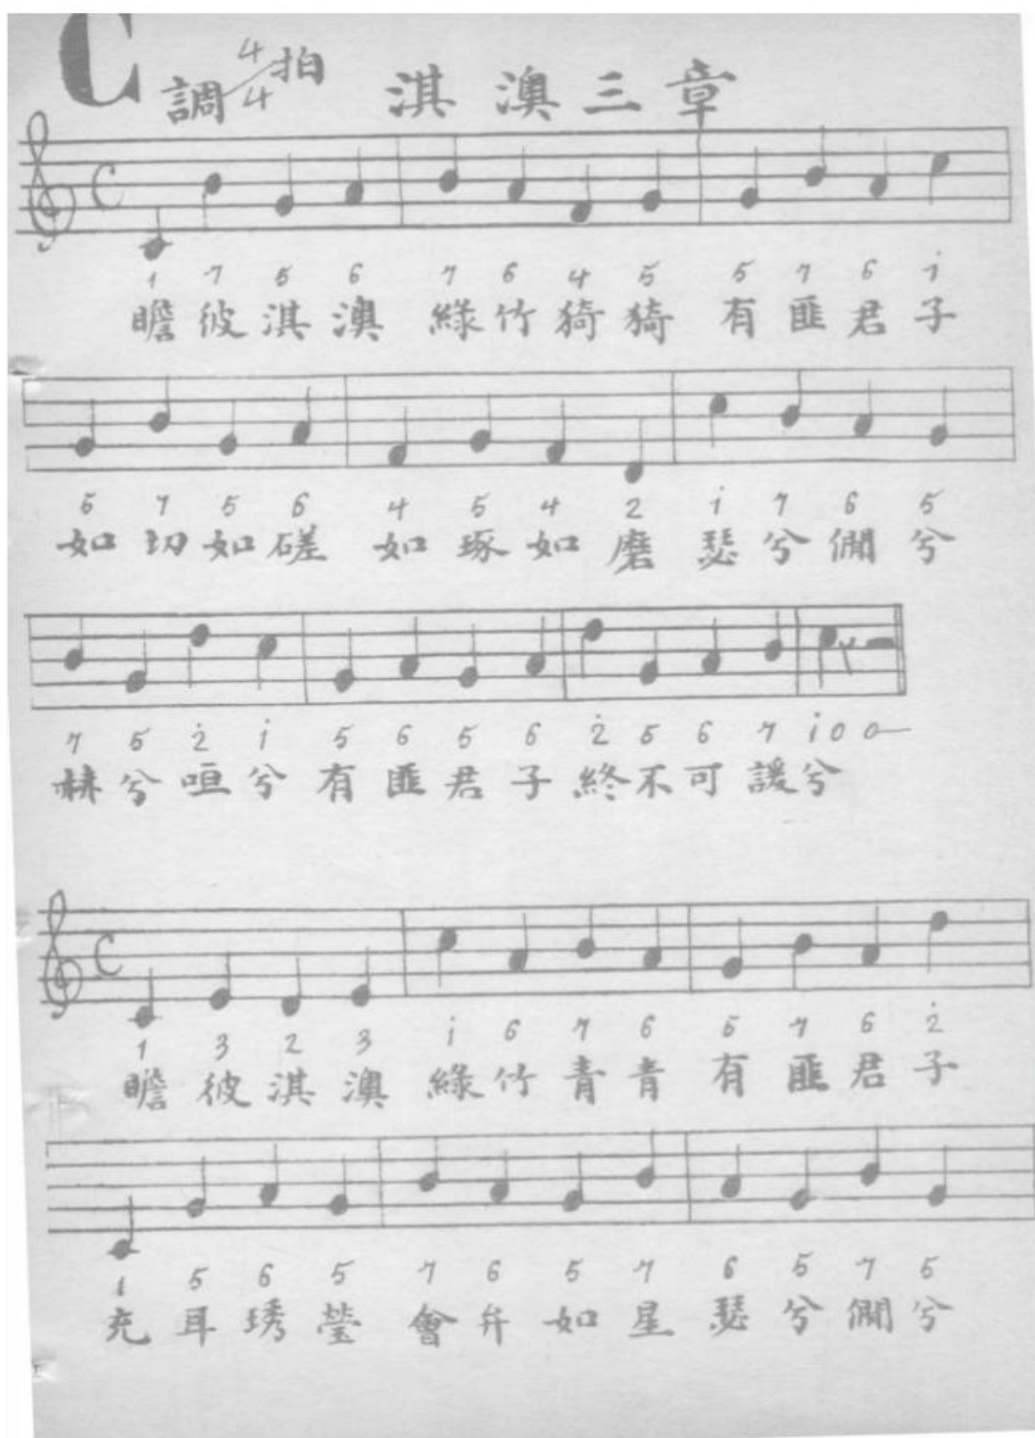 C調 4/4 拍 淇澳三章
1 7 5 6 7 6 4 5 5 7 6 i
瞻彼淇澳 綠竹猗猗 有匪君子
5 7 5 6 4 5 4 2 i 7 6 5
如切如磋 如琢如磨 瑟兮僩兮
7 5 2̇ i 5 6 5 6 2̇ 5 6 7 i 0 0—
赫兮咺兮 有匪君子 終不可諼兮
1 3 2 3 i 6 7 6 5 7 6 2̇
瞻彼淇澳 綠竹青青 有匪君子
1 5 6 5 7 6 5 7 6 5 7 5
充耳琇瑩 會弁如星 瑟兮僩兮